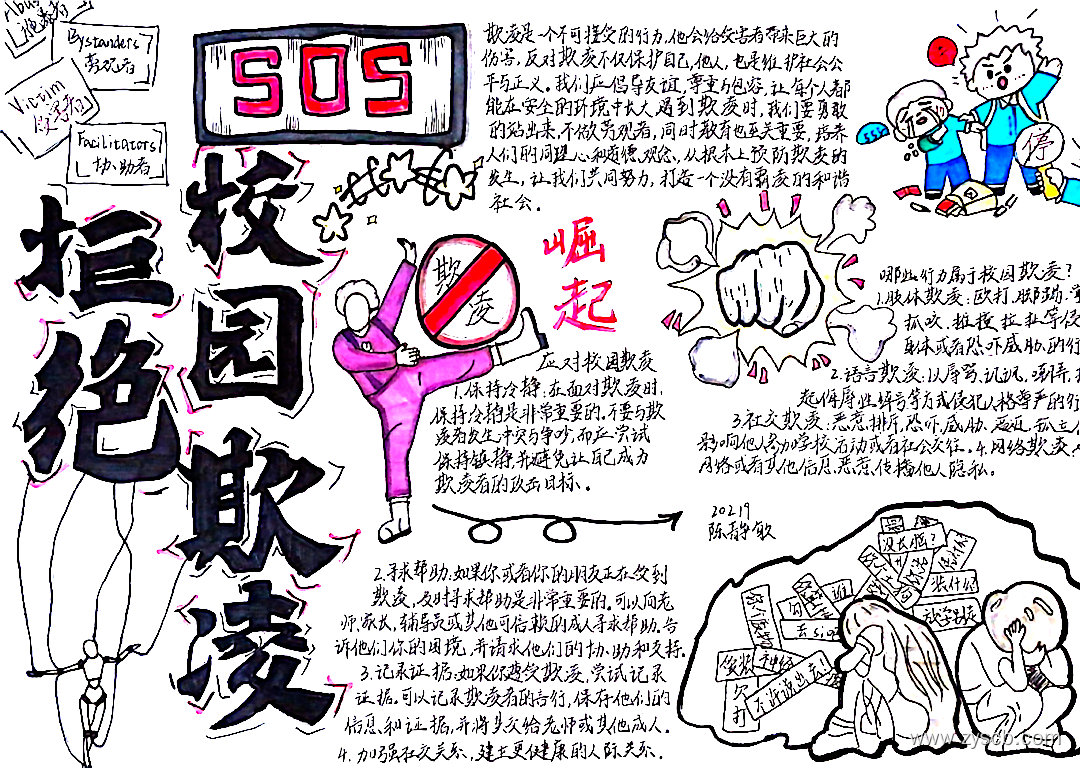 Abus
施暴者
Bystanders
旁观者
Victim
受害者
Facilitators
协助者
SOS
拒绝
校园欺凌
欺凌是一个不可接受的行为,他会给受害者带来巨大的
伤害,反对欺凌不仅保护自己,他人,也是维护社会公
平与正义。我们应倡导友谊,尊重与包容,让每个人都
能在安全的环境中长大,遇到欺凌时,我们要勇敢
的站出来,不做旁观者,同时教育也至关重要,培养
人们的同理心和道德观念,从根本上预防欺凌的
发生,让我们共同努力,打造一个没有霸凌的和谐
社会。
停
欺
凌
崛
起
应对校园欺凌
1.保持冷静:在面对欺凌时,
保持冷静是非常重要的,不要与欺
凌者发生冲突与争吵,而应尝试
保持镇静,并避免让自己成为
欺凌者的攻击目标。
2.寻求帮助:如果你或者你的朋友正在受到
欺凌,及时寻求帮助是非常重要的。可以向老
师,家长,辅导员或其他可信赖的成人寻求帮助。告
诉他们你的困境,并请求他们的协助和支持.
3.记录证据:如果你遭受欺凌,尝试记录
证据。可以记录欺凌者的言行,保存他们的
信息和证据,并将其交给老师或其他成人.
4.加强社交关系,建立更健康的人际关系.
哪些行为属于校园欺凌?
1.肢体欺凌:殴打、脚踢、掌
抓咬、推撞、拉扯等侵
身体或者恐吓威胁的行
2.语言欺凌:以辱骂、讥讽、嘲弄、
起侮辱性绰号等方式侵犯人格尊严的行
3.社交欺凌:恶意排斥、恐吓、威胁、逼迫、孤立
影响他人参加学校活动或者社会交往。4.网络欺凌
网络或者其他信息,恶意传播他人隐私。
20219
陈静敏
没长脑?
装什么
去死
神经
欠
打
不许说出去!
www.zyscb.com